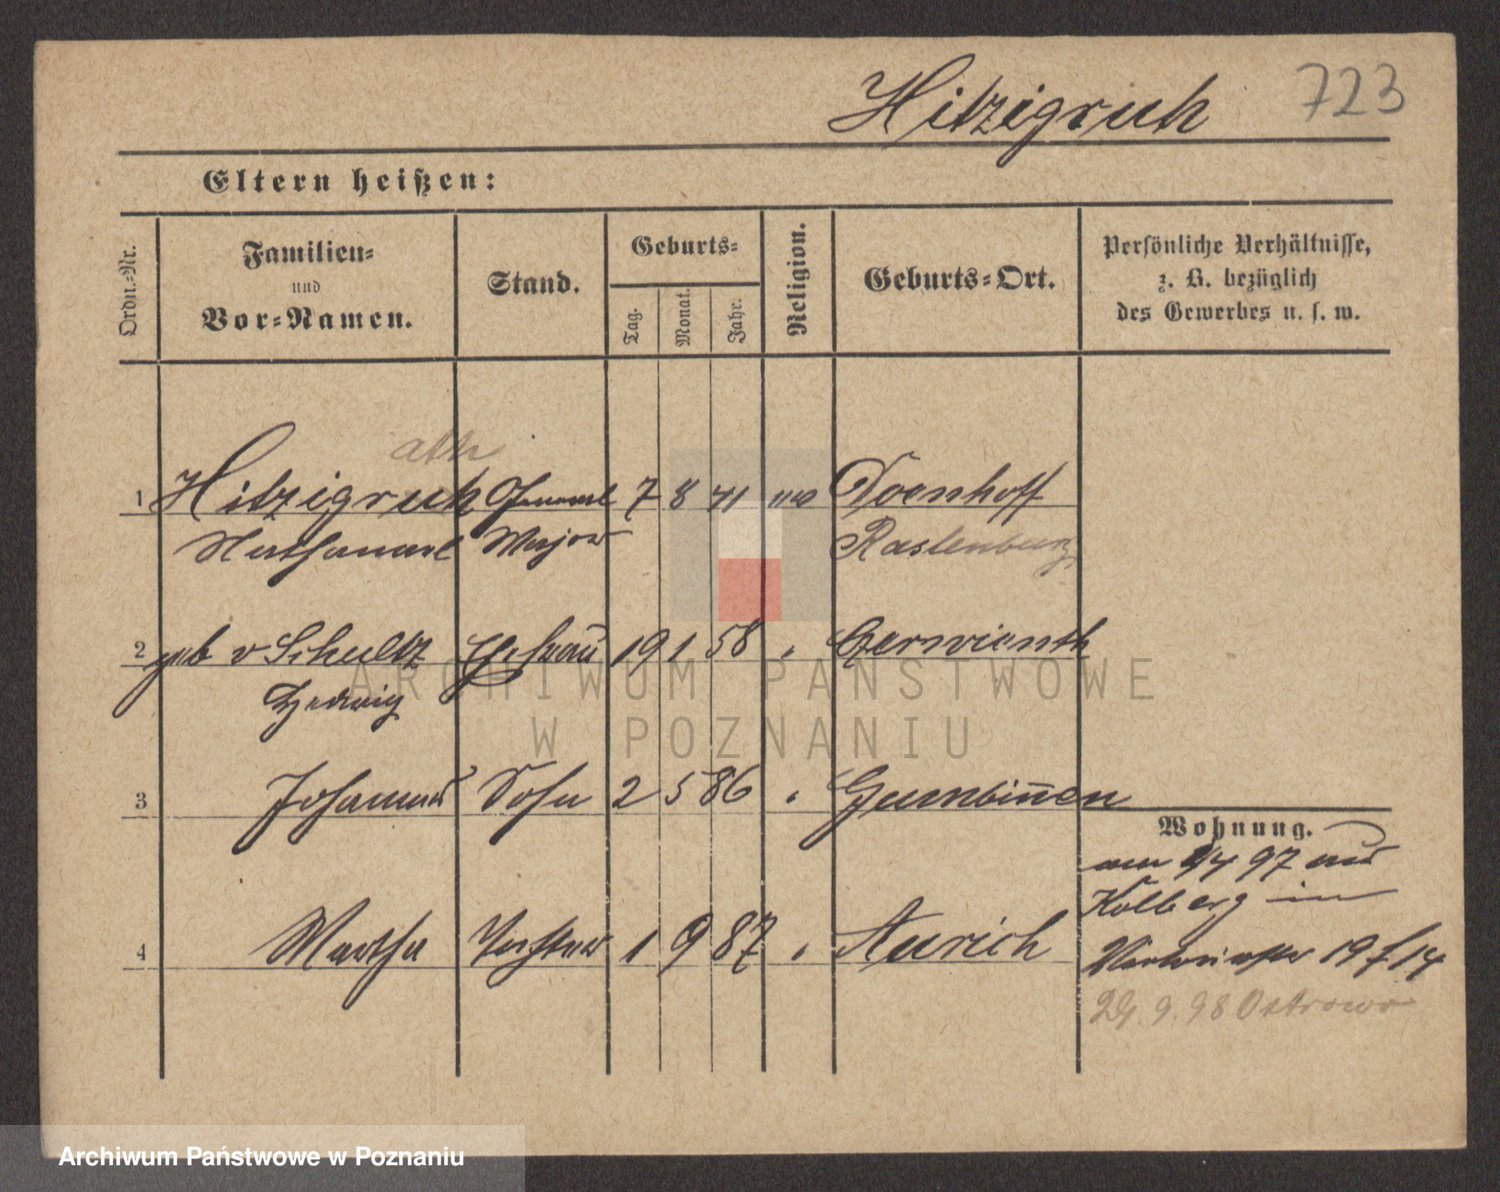 Hitzigrath 723
Eltern heißen:
Ordn.-Nr.
Familien-
und
Vor-Namen.
Stand.
Geburts-
Tag.
Monat.
Jahr.
Religion.
Geburts-Ort.
Persönliche Verhältnisse,
z. B. bezüglich
des Gewerbes u. s. w.
ath
1 Hitzigruth General 7 8 41 Doenhoff
Nathanael Major Rastenburg
2 geb v Schultz Ehefrau 19 1 58 " Gerwienth
Hedwig
3 Johannes Sohn 2 5 86 " Gumbinnen
Wohnung.
am 1/4 97 aus
Kolberg in
4 Martha Tochter 1 9 87 " Aurich
19 / 14
29. 9. 98 Ostrowo
ARCHIWUM PAŃSTWOWE
W POZNANIU
Archiwum Państwowe w Poznaniu